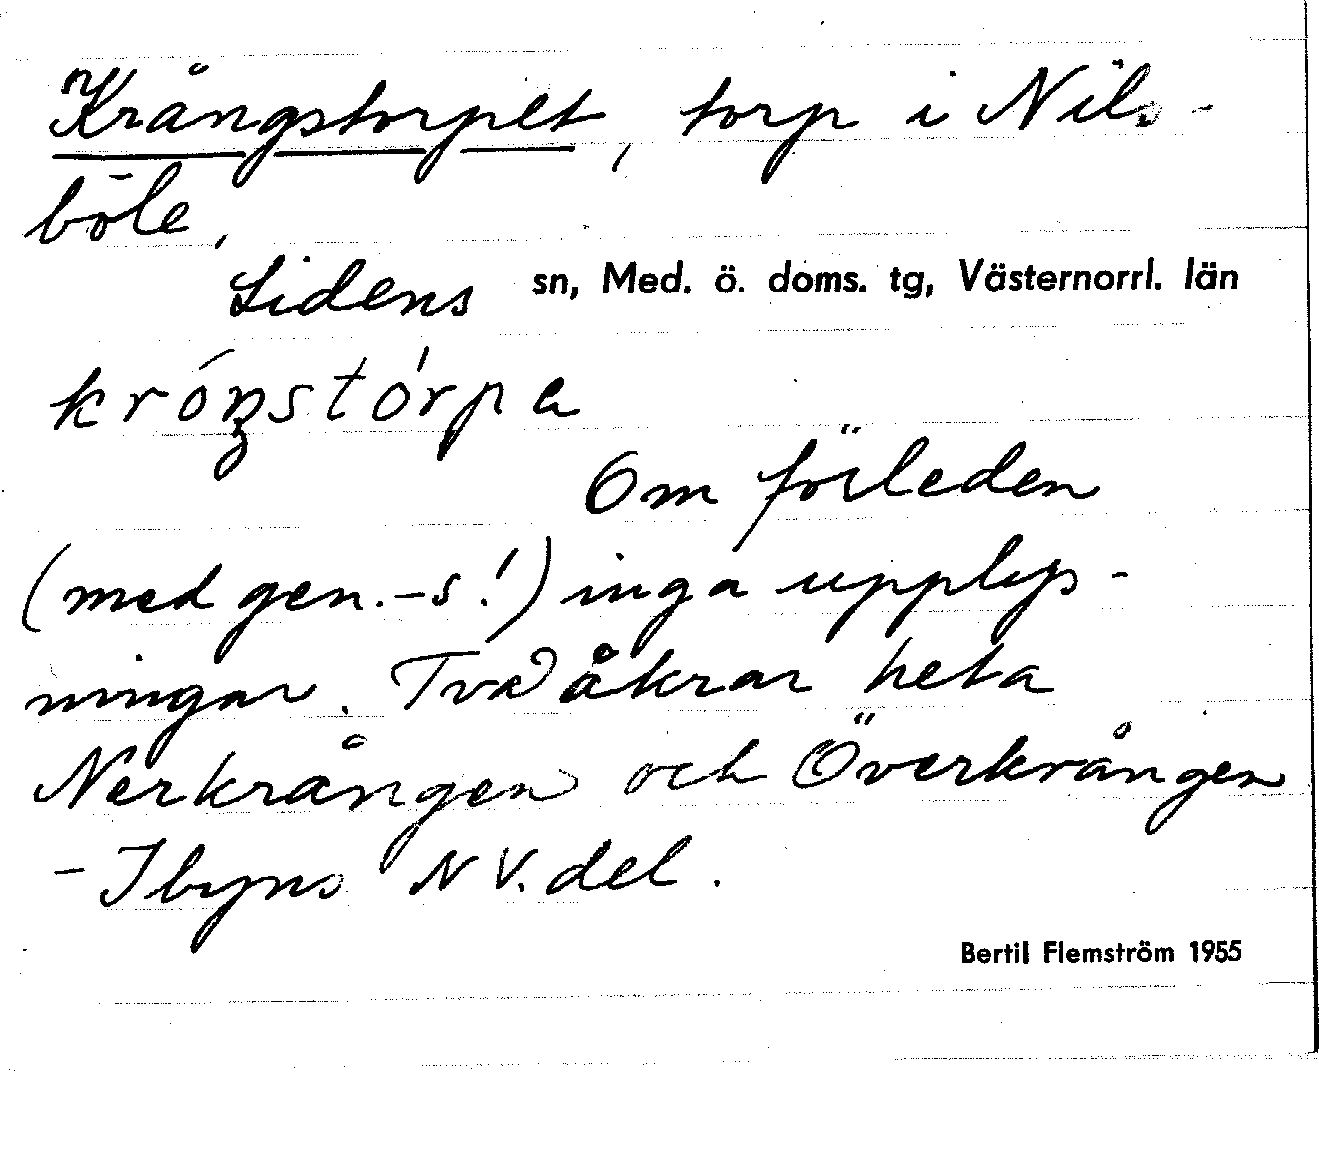 Krångstorpet, torp i Nils-
böle,
Lidens sn, Med. ö. doms. tg, Västernorrl. län
króŋstórpa
Om förleden
(med gen.-s!) inga upplys-
ningar. Två åkrar heta
Nerkrången och Överkrången
- I byns NV. del.
Bertil Flemström 1955